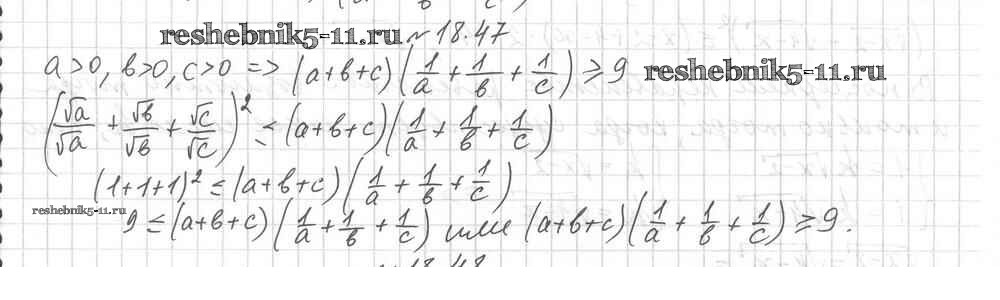 reshebnik5-11.ru № 18.47
a>0, b>0, c>0 => (a+b+c)(1/a + 1/b + 1/c) ≥ 9 reshebnik5-11.ru
(√a/√a + √b/√b + √c/√c)² ≤ (a+b+c)(1/a + 1/b + 1/c)
(1+1+1)² ≤ (a+b+c)(1/a + 1/b + 1/c)
reshebnik5-11.ru
9 ≤ (a+b+c)(1/a + 1/b + 1/c) или (a+b+c)(1/a + 1/b + 1/c) ≥ 9.